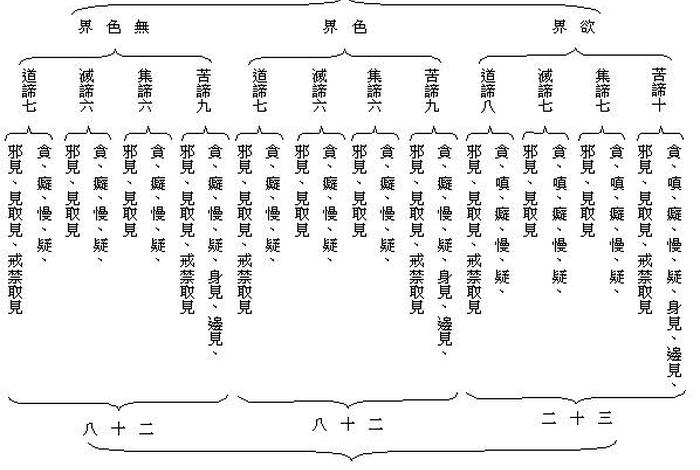 欲界
色界
無色界
苦諦十
集諦七
滅諦七
道諦八
苦諦九
集諦六
滅諦六
道諦七
苦諦九
集諦六
滅諦六
道諦七
貪、嗔、癡、慢、疑、身見、邊見、
邪見、見取見、戒禁取見
貪、嗔、癡、慢、疑、
邪見、見取見
貪、嗔、癡、慢、疑、
邪見、見取見
貪、嗔、癡、慢、疑、
邪見、見取見、戒禁取見
貪、癡、慢、疑、身見、邊見、
邪見、見取見、戒禁取見
貪、癡、慢、疑、
邪見、見取見
貪、癡、慢、疑、
邪見、見取見
貪、癡、慢、疑、
邪見、見取見、戒禁取見
貪、癡、慢、疑、身見、邊見、
邪見、見取見、戒禁取見
貪、癡、慢、疑、
邪見、見取見
貪、癡、慢、疑、
邪見、見取見
貪、癡、慢、疑、
邪見、見取見、戒禁取見
三十二
二十八
二十八